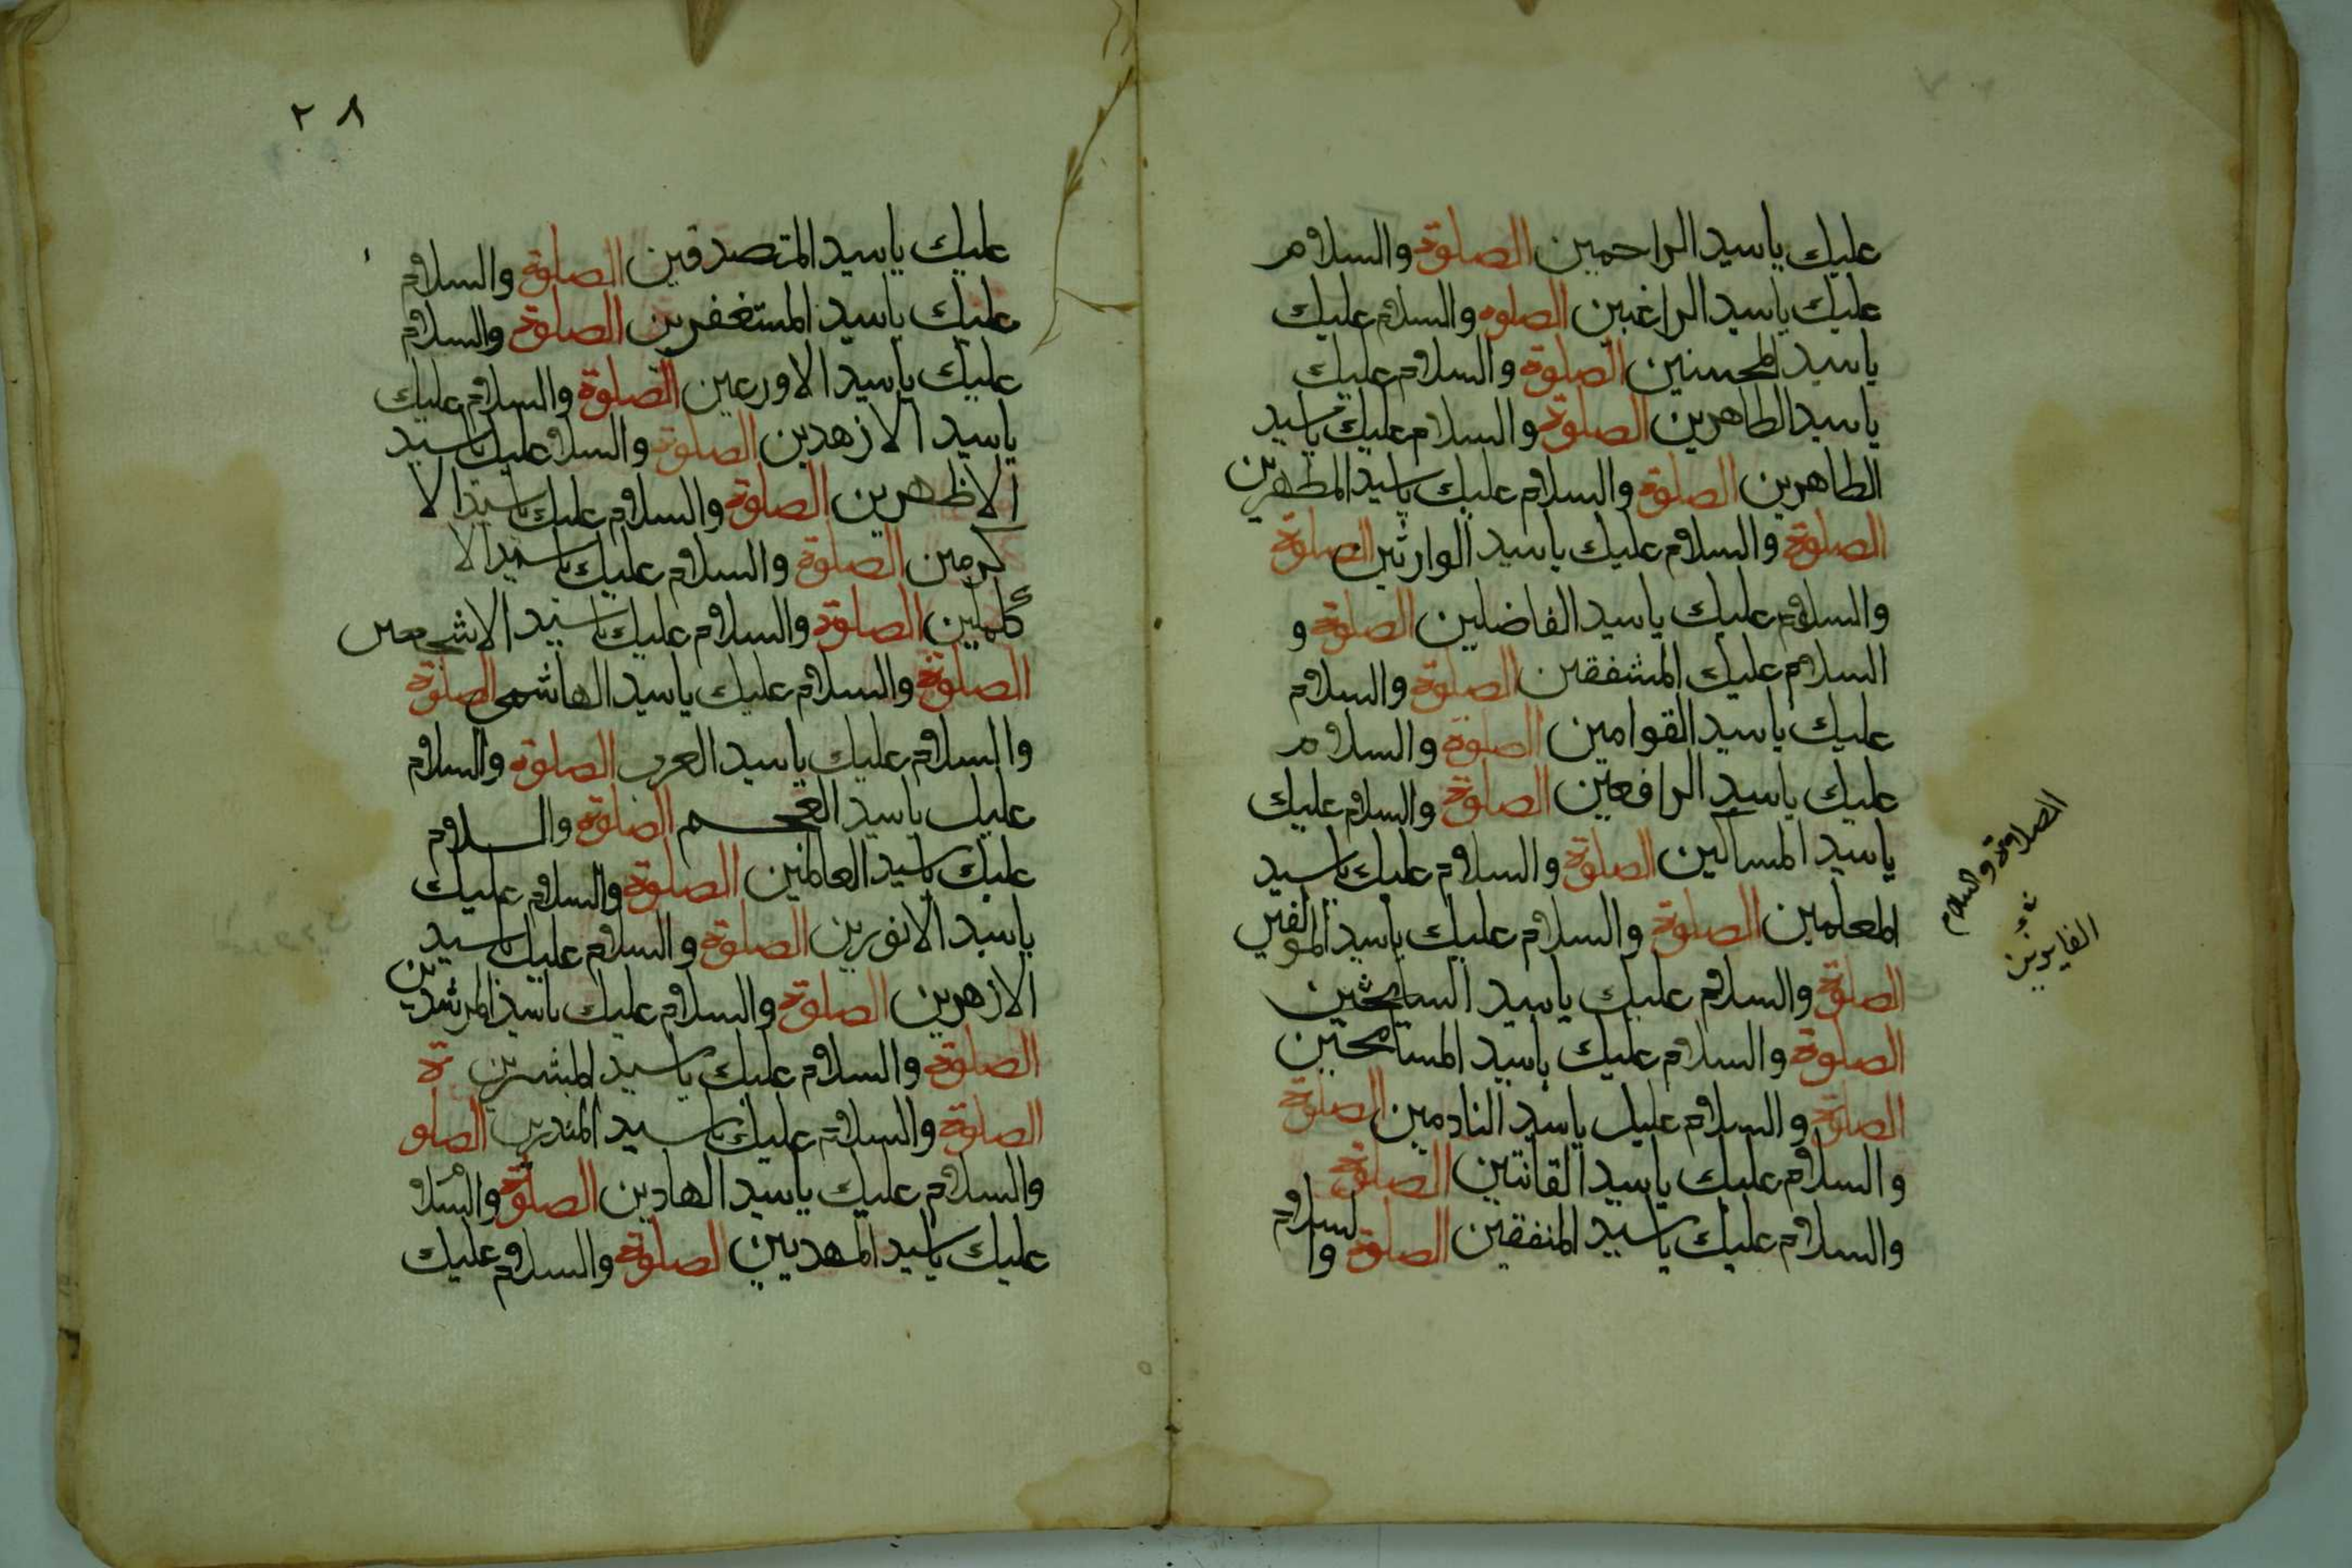 عليك ياسيد الراحمين الصلوة والسلام
عليك ياسيد الراغبين الصلوه والسلام عليك
ياسيد المحسنين الصلوة والسلام عليك
ياسيد الطاهرين الصلوة والسلام عليك ياسيد
الطاهرين الصلوة والسلام عليك ياسيد المطهرين
الصلوة والسلام عليك ياسيد الوارثين الصلوة
والسلام عليك ياسيد الفاضلين الصلوة و
السلام عليك المشفقين الصلوة والسلام
عليك ياسيد القوامين الصلوة والسلام
عليك ياسيد الرافعين الصلوة والسلام عليك
ياسيد المساكين الصلوة والسلام عليك ياسيد
المعلمين الصلوة والسلام عليك ياسيد
الصلوة والسلام عليك ياسيد
الصلوة والسلام عليك ياسيد
الصلوة والسلام عليك ياسيد النادمين الصلوة
والسلام عليك ياسيد القانتين الصلوة
والسلام عليك ياسيد المنفقين الصلوة والسلام
الصلاوة والسلام
الفايزين
٢٨
عليك ياسيد المتصدقين الصلوة والسلام
عليك ياسيد المستغفرين الصلوة والسلام
عليك ياسيد الاورعين الصلوة والسلام عليك
ياسيد الازهدين الصلوة والسلا عليك ياسيد
الاظهرين الصلوة والسلام عليك ياسيد الا
كرمين الصلوة والسلام عليك ياسيد الا
كملين الصلوة والسلام عليك ياسيد الاشجعين
الصلوة والسلام عليك ياسيد الهاشمى الصلوة
والسلام عليك ياسيد العرب الصلوة والسلام
عليك ياسيد العجم الصلوة والسلام
عليك ياسيد العالمين الصلوة والسلام عليك
ياسيد الانورين الصلوة والسلام عليك ياسيد
الازهرين الصلوة والسلام عليك ياسيد المرشدين
الصلوة والسلام عليك ياسيد المبشرين
الصلوة والسلام عليك ياسيد المنذرين الصلوة
والسلام عليك ياسيد الهادين الصلوة والسلام
عليك ياسيد المهديين الصلوة والسلام عليك